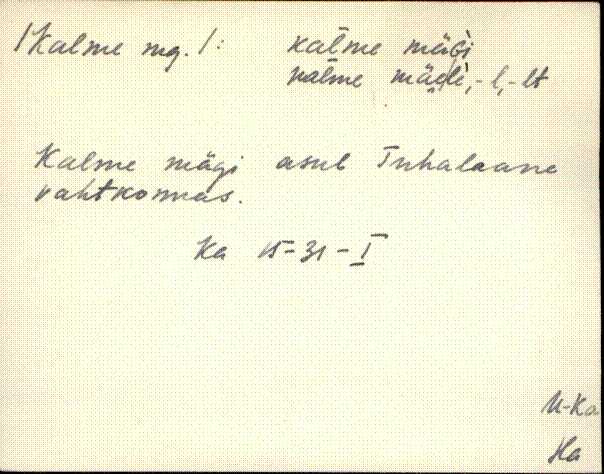 /Kalme mg./: kalme mäGi
kalme mäele, -l, -lt
Kalme mägi asub Inhalaane
vahtkonnas.
Ka 15-31-I
M-Ka
Ha